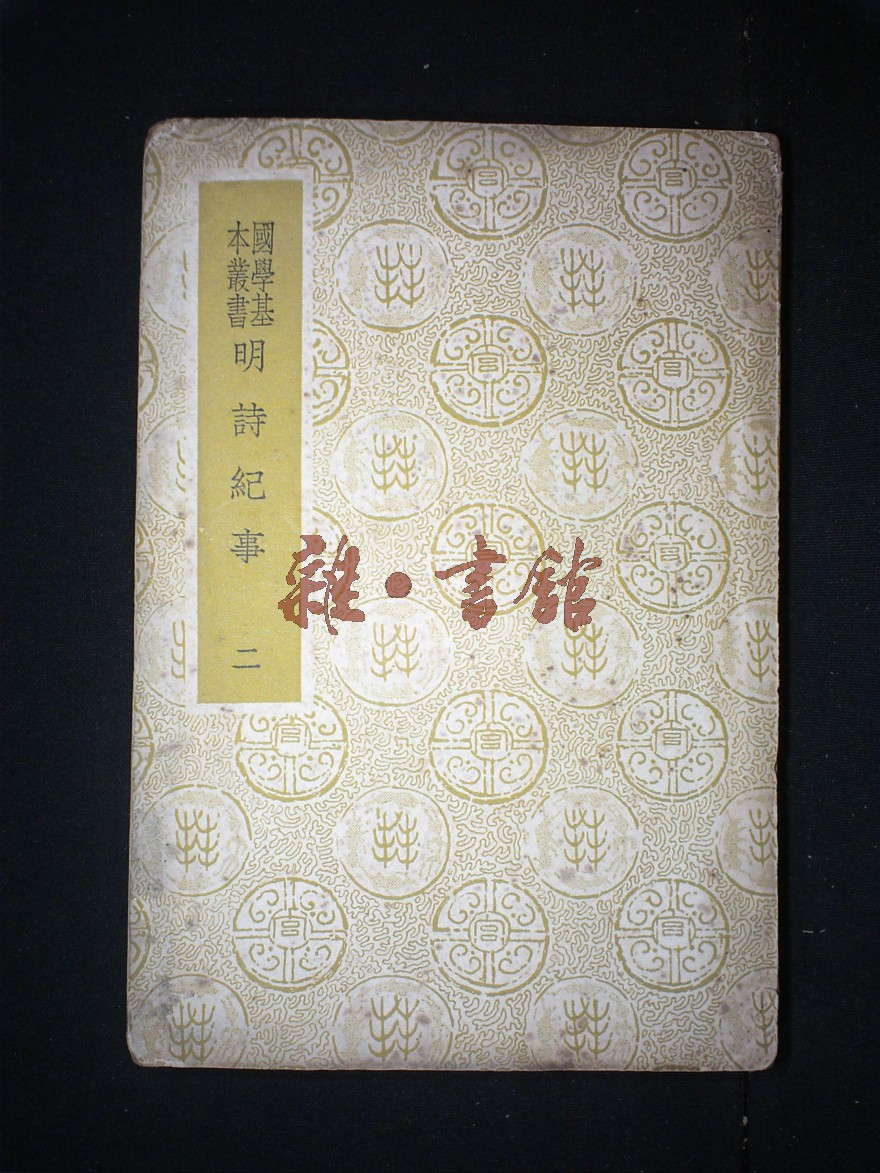 國學基
本叢書
明詩紀事 二
雜·書館